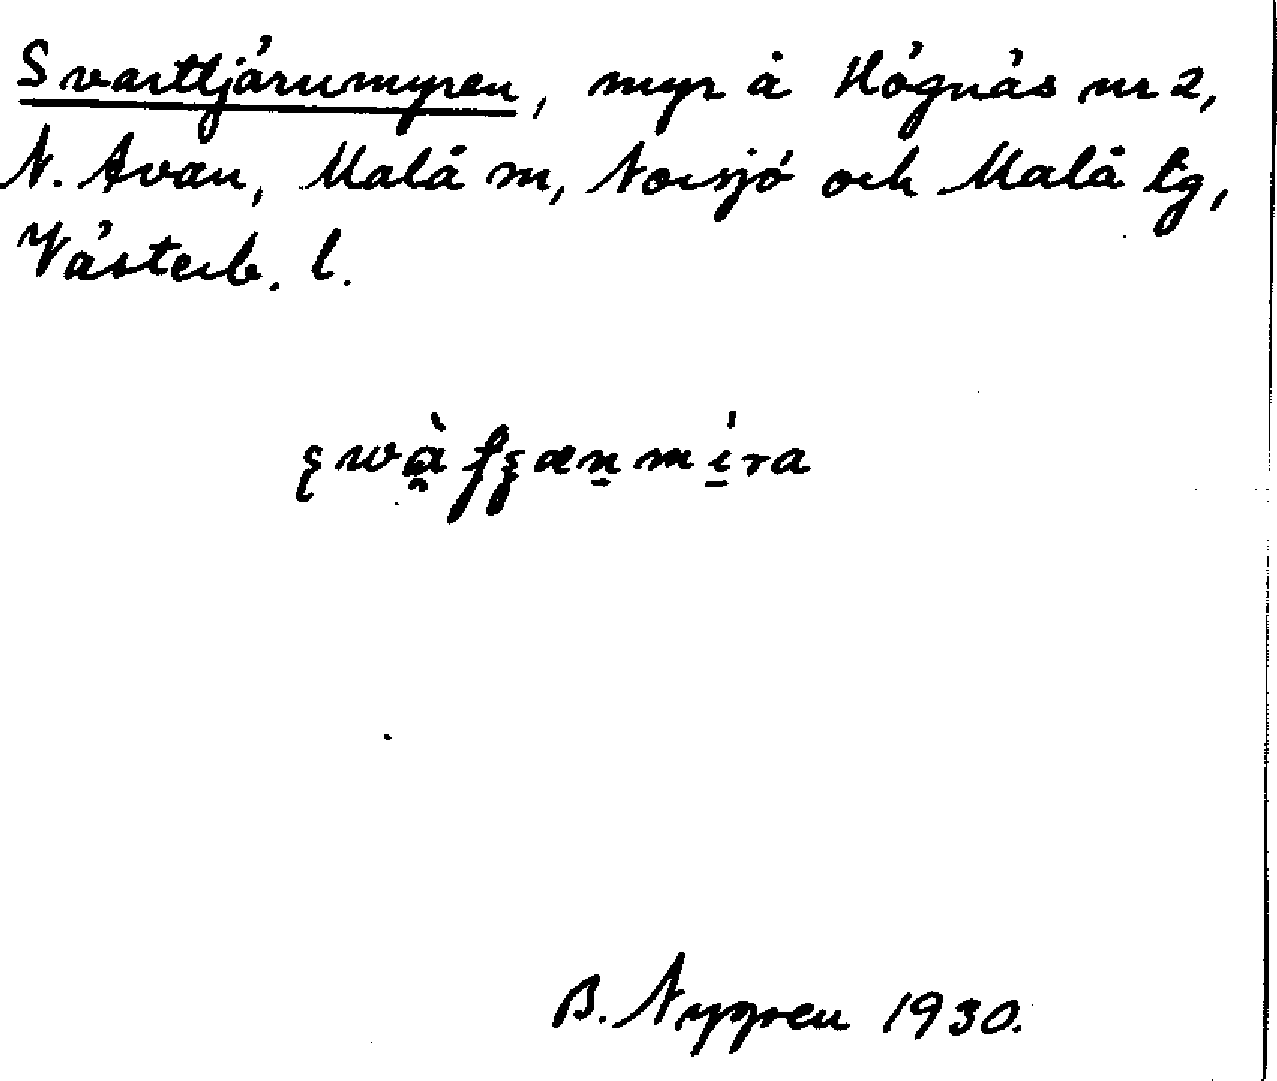 Svarttjärnmyren, myr å Högnäs nr 2,
N. Avan, Malå sn, Norsjö och Malå tg,
Västerb. l.
B. Nygren 1930.